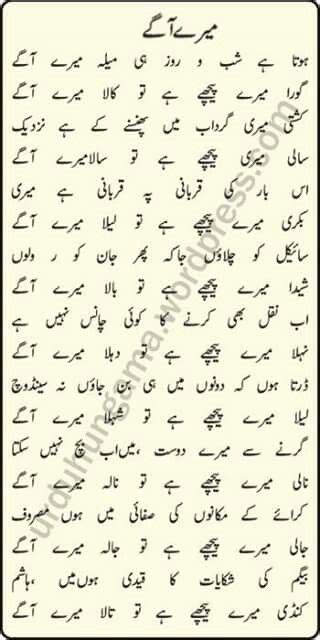 میرے آگے
ہوتا ہے شب و روز ہی میلہ میرے آگے
گورا میرے پیچھے ہے تو کالا میرے آگے
کشتی میری گرداب میں پھنسنے کے ہے نزدیک
سالی میری پیچھے ہے تو سالا میرے آگے
اس بار کی قربانی پہ قربانی ہے میری
بکری میرے پیچھے ہے تو لیلا میرے آگے
سائیکل کو چلاؤں جاکہ پھر جان کو ر ولوں
شیدا میرے پیچھے ہے تو بالا میرے آگے
اب نقل بھی کرنے کا کوئی چانس نہیں ہے
نہلا میرے پیچھے ہے تو دہلا میرے آگے
ڈرتا ہوں کہ دونوں میں ہی بن جاؤں نہ سینڈوچ
لیلا میرے پیچھے ہے تو شہلا میرے آگے
گرنے سے میرے دوست ،میں اب بچ نہیں سکتا
نالی میرے پیچھے ہے تو نالہ میرے آگے
کرائے کے مکانوں کی صفائی میں ہوں مصروف
جالی میرے پیچھے ہے تو جالہ میرے آگے
بیگم کی شکایات کا قیدی ہوں میں ،ہاشم
کنڈی میرے پیچھے ہے تو تالا میرے آگے
urduhungama.wordpress.com